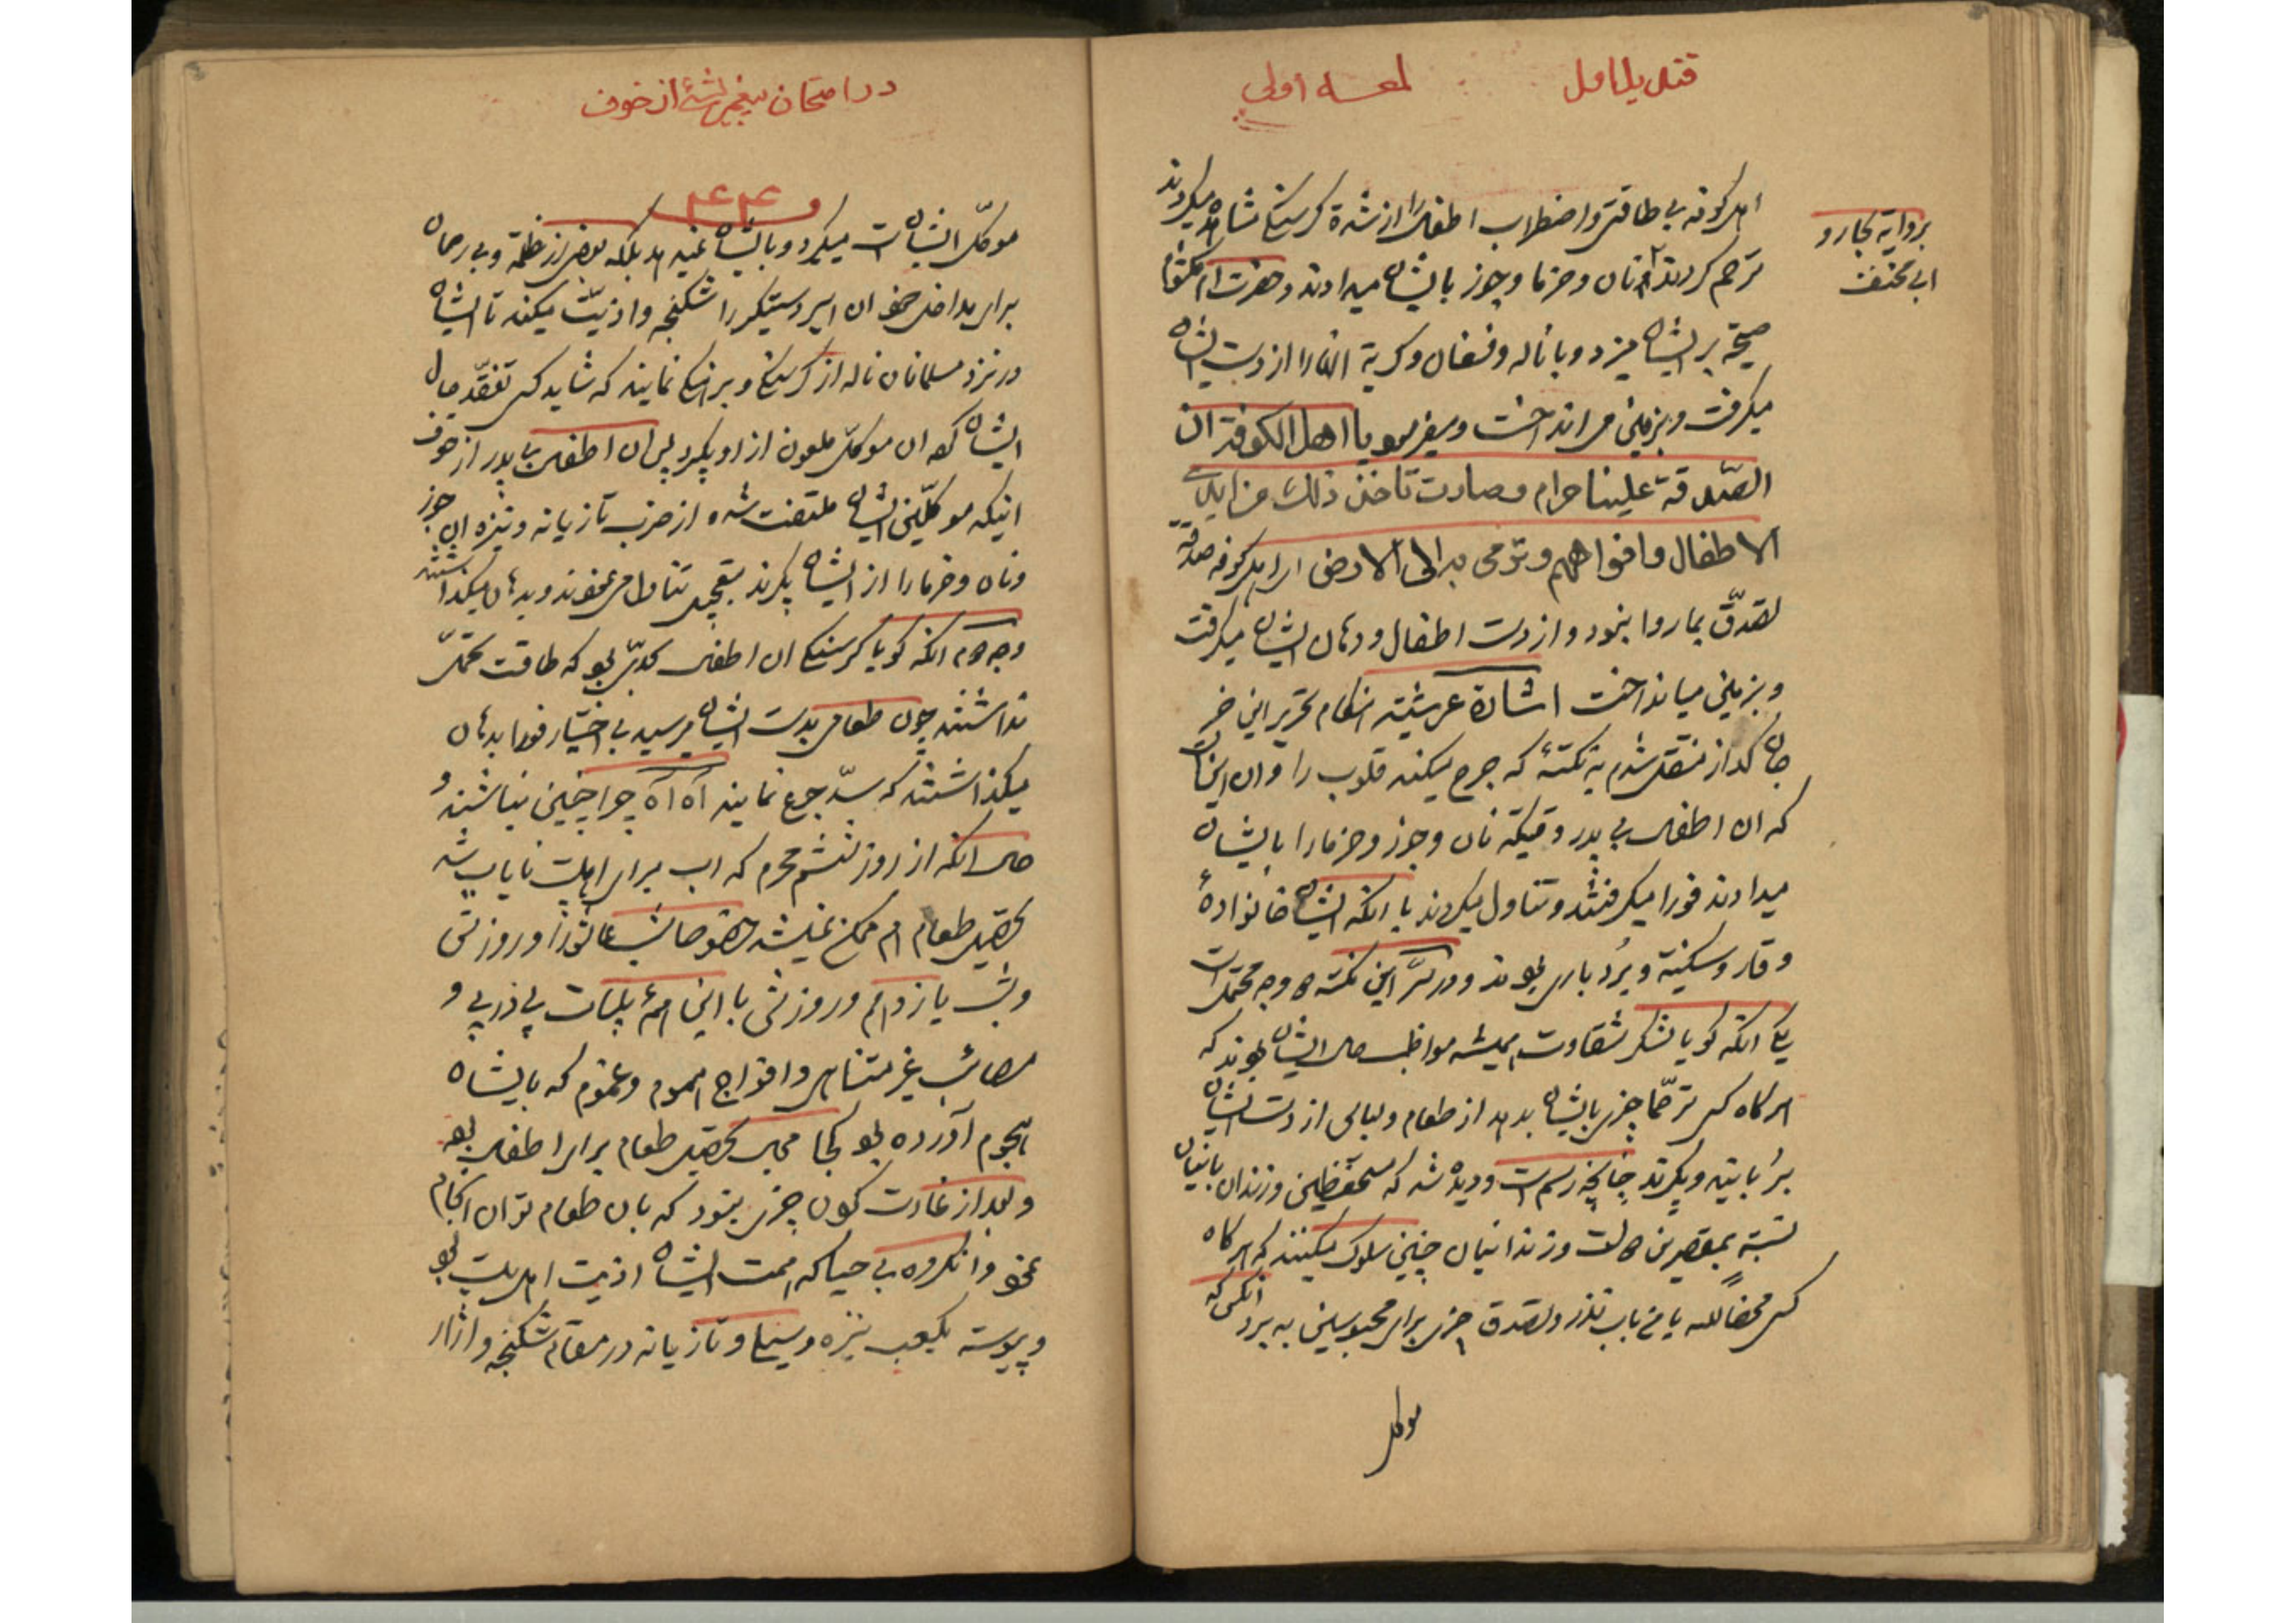 قندیل اول
لمعه اولی
بروایة بحار و
ابی مخنف
اهل کوفه بی طاقتی و اضطراب اطفال را از شدة کرسنکی مشاهده میکردند
ترحم کردند نان و خرما و جوز بایشان میدادند و حضرت ام کلثوم
صیحه بر ایشان میزد و با ناله و فغان و کریه انها را از دست ایشان
میکرفت و بزمین می انداخت و میفرمود یا اهل الکوفة ان
الصّدقة علینا حرام و صارت تاخذ ذلک من ایدی
الاطفال و افواههم و ترمی به الی الارض ای اهل کوفه صدقه
تصدّق بما روا نبود و از دست اطفال و دهان ایشان میکرفت
و بزمین میانداخت اشارة عرشیّة هنکام تحریر این خبر
جان کداز منتقل شدم به نکتهٔ که جرح میکند قلوب را و ان اینست
که ان اطفال بی پدر وقتیکه نان و جوز و خرما را بایشان
میدادند فورا میکرفتند و تناول میکردند با انکه ایشان خانوادهٔ
وقار و سکینة و بردباری بودند و در سرّ این نکته ۲ وجه محتمل است
یکی انکه کویا لشکر شقاوت همیشه مواظب حال ایشان بودند که
هرکاه کسی ترحّما چیزی بایشان بدهد از طعام و لباس از دست ایشان
بربایند و بکیرند چنانچه رسم است و دیده شد که مستحفظین و زندان بانیان
نسبة بمقصرین دولت و زندانیان چنین سلوک میکنند که هرکاه
کسی محضاً لله یا من باب نذر و تصدق چیزی برای محبوسین به برد انکس که
موکل
در امتحان پیغمبر بشئ از خوف
۴۴
موکل ایشان است میکیرد و بایشان نمیدهد بلکه بعضی از ظلمة و بی رحمان
برای مداخل خود ان اسیر دستکیر را شکنجه و اذیّت میکند تا ایشان
در نزد مسلمانان ناله از کرسنکی و برهنکی نمایند که شاید کسی تفقّد حال
ایشان کند ان موکل ملعون از او بکیرد پس ان اطفال بی پدر از خوف
اینکه موکّلین ایشان ملتفت شده از ضرب تازیانه و نیزه ان جوز
و نان و خرما را از ایشان بکیرند بتعجیل تناول می نمودند و بدهان میکذاشتند
وجه دوم انکه کویا کرسنکی ان اطفال بحدّی بود که طاقت تحمّل
نداشتند چون طعامی بدست ایشان میرسید بی اختیار فورا بدهان
میکذاشتند که سدّ جوع نمایند آه آه چرا چنین نباشند و
حال انکه از روز هشتم محرم که اب برای اهلبیت نایاب شد
تحصیل طعام هم ممکن نمیشد خصوصا شب عاشورا و روزش
و شب یازدهم و روزش با این همهٔ بلیات پی در پی و
مصائب غیر متناهی و افواج هموم و غموم که بایشان
هجوم آورده بود کجا مجال تحصیل طعام برای اطفال بود
و بعد از غارت کردن چیزی نبود که بان طعام توان انجام
نمود و انکروه بی حیا که همت ایشان اذیت اهل بیت بود
و پیوسته بکعب نیزه و سیلی و تازیانه در مقام شکنجه و ازار